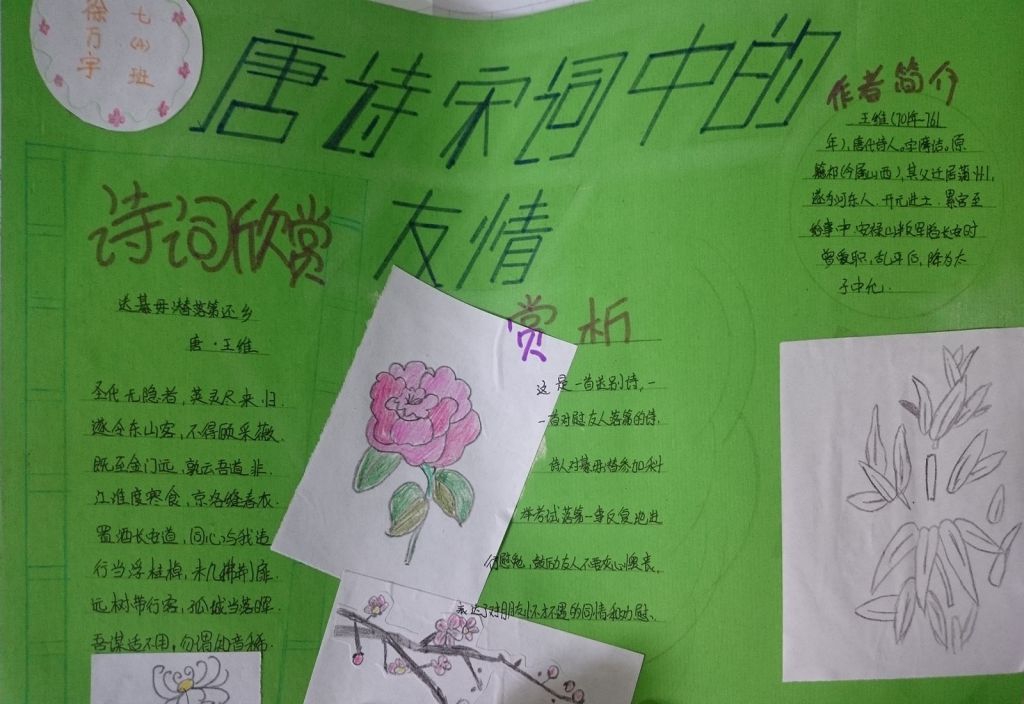 七(4)班
徐万宇
唐诗宋词中的
友情
诗词欣赏
送綦毋潜落第还乡
唐·王维
圣代无隐者,英灵尽来归.
遂令东山客,不得顾采薇.
既至金门远,孰云吾道非.
江淮度寒食,京洛缝春衣.
置酒长安道,同心与我违
行当浮桂棹,未几拂荆扉.
远树带行客,孤城当落晖.
吾谋适不用,勿谓知音稀.
赏析
这是一首送别诗,一
首对慰友人落第的诗,
诗人对綦毋潜参加科
举考试落第一事反复地进
行慰勉,鼓励友人不要灰心懊丧,
表达了对朋友怀才不遇的同情和劝慰、
作者简介
王维(701年-761
年),唐代诗人。字摩诘。原
籍祁(今属山西),其父迁居蒲州,
遂为河东人.开元进士.累官至
给事中.安禄山叛军陷长安时
曾受职,乱平后,降为太
子中允.